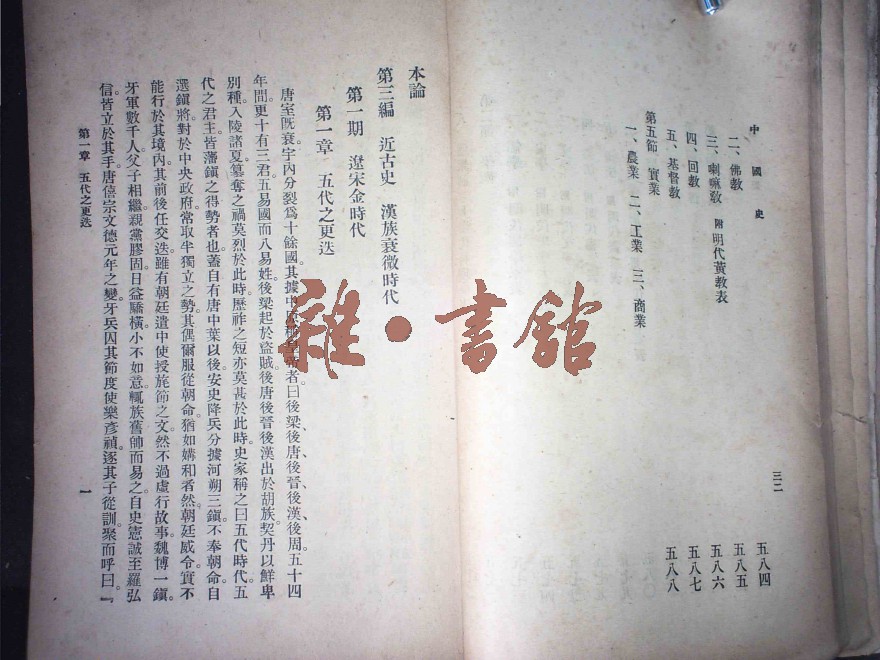 中國史
二、佛教
三、喇嘛教 附 明代黃教表
四、回教
五、基督教
第五節 實業
一、農業 二、工業 三、商業
三二
五八四
五八五
五八六
五八七
五八八
本論
第三編 近古史 漢族衰微時代
第一期 遼宋金時代
第一章 五代之更迭
唐室旣衰。宇內分裂爲十餘國。其據中原稱皇帝者。曰後梁、後唐、後晉、後漢、後周。五十四
年間。更十有三君。五易國而八易姓。後梁起於盜賊。後唐後晉後漢出於胡族。契丹以鮮卑
別種。入陵諸夏。篡奪之禍。莫烈於此時。歷祚之短。亦莫甚於此時。史家稱之曰五代時代。五
代之君主。皆藩鎮之得勢者也。蓋自有唐中葉以後。安史降兵。分據河朔三鎮。不奉朝命。自
選鎮將。對於中央政府。常取半獨立之勢。其偶爾服從朝命。猶如媾和者然。朝廷威令。實不
能行於其境內。其前後任交迭。雖有朝廷遣中使授旄節之文。然不過虛行故事。魏博一鎮。
牙軍數千人。父子相繼。親黨膠固。日益驕橫。小不如意。輒族舊帥而易之。自史憲誠至羅弘
信。皆立於其手。唐僖宗文德元年之變。牙兵囚其節度使樂彥禎。逐其子從訓。聚而呼曰。『
第一章 五代之更迭
一
雜·書館